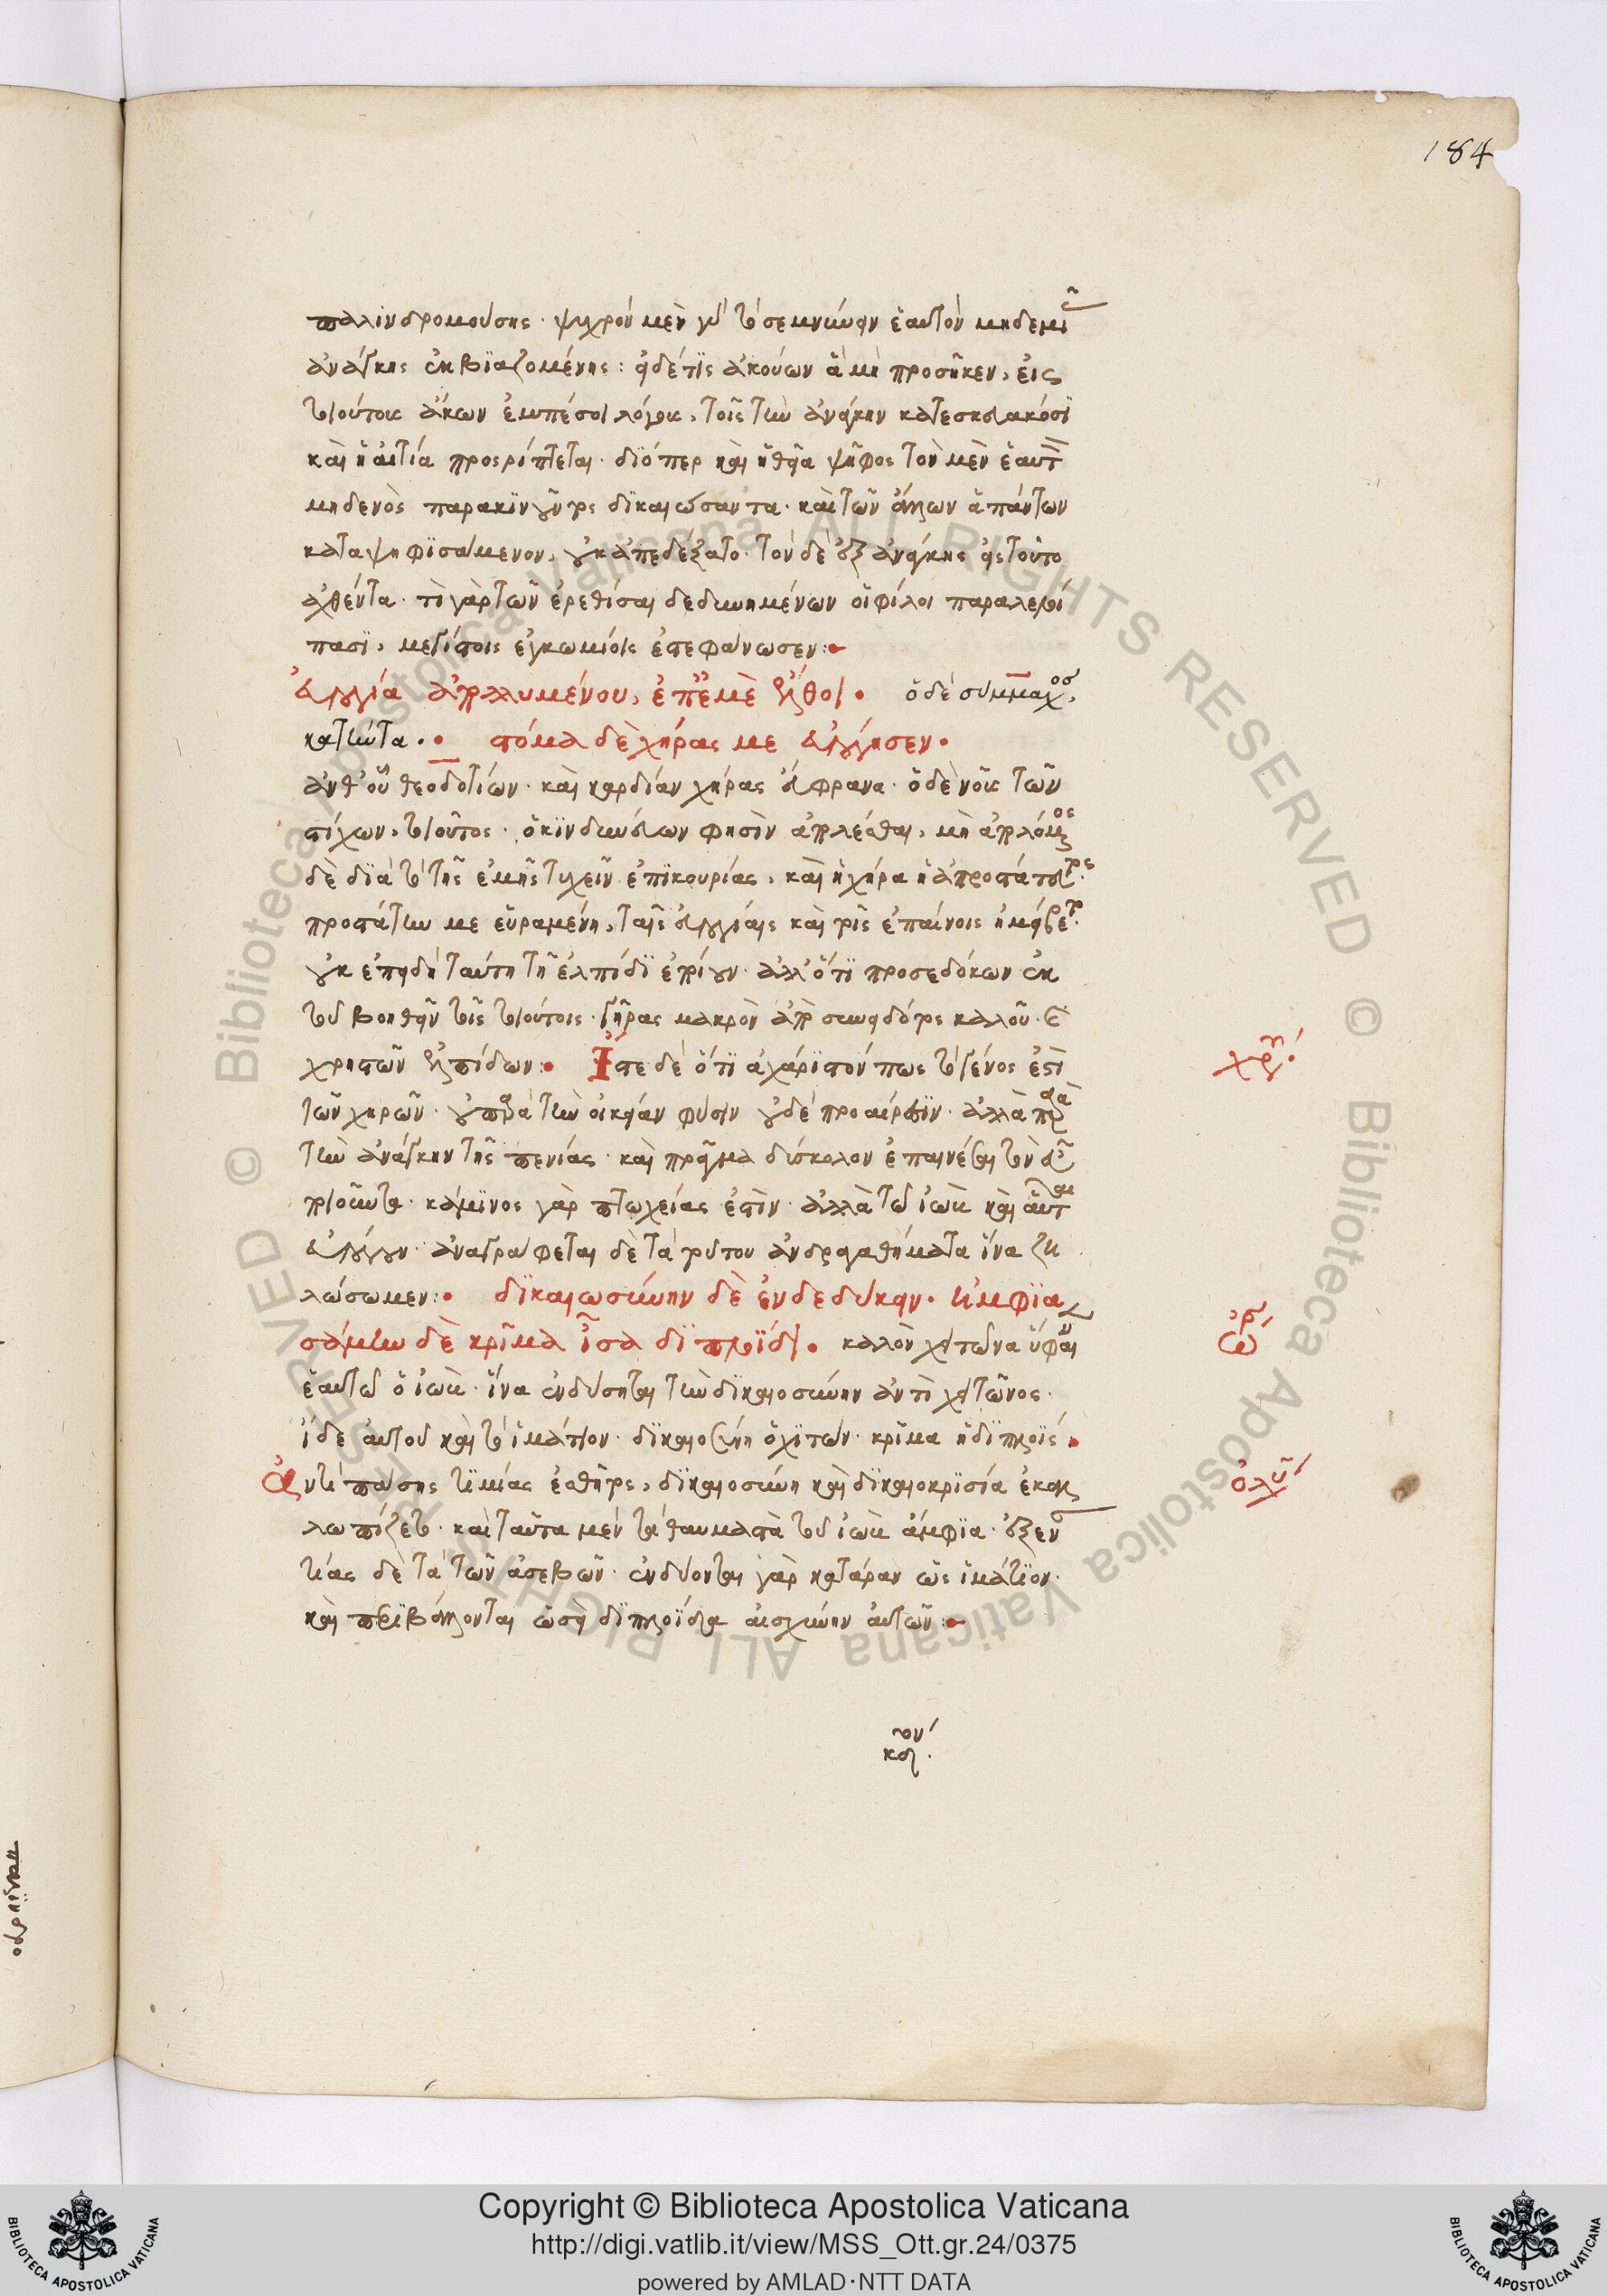 184
παλινδρομούσης· ψυχρὸν μὲν γὰρ τὸ σεμνύνειν ἑαυτὸν μηδεμιᾶς
ἀνάγκης ἐκβιαζομένης: εἰ δέ τις ἀκούων ἃ μὴ προσῆκεν, εἰς
τοιούτους ἄκων ἐμπέσοι λόγους, τοῖς τὴν ἀνάγκην κατεσκευακόσι
καὶ ἡ αἰτία προσρίπτεται· διόπερ καὶ ἡ θεία ψῆφος τὸν μὲν ἑαυτὸν
μηδενὸς παρακινοῦντος δικαιώσαντα· καὶ τῶν ἄλλων ἁπάντων
καταψηφισάμενον, οὐκ ἀπεδέξατο· τὸν δὲ ἐξ ἀνάγκης εἰς τοῦτο
ἀχθέντα· τί γὰρ τῶν ἐρεθίσαι δεδυνημένων οἱ φίλοι παραλελοί
πασι, μεγίστοις ἐγκωμίοις ἐστεφάνωσεν:
εὐλογία ἀπολλυμένου, ἐπ' ἐμὲ ἔλθοι. ὁ δὲ σύμμαχος,
κατιόντα. στόμα δὲ χήρας με εὐλόγησεν.
ἀνθ' οὗ θεοδοτίων· καὶ καρδίαν χήρας εὔφρανα· ὁ δὲ νοῦς τῶν
στίχων, τοιοῦτος· ὁ κινδυνεύων φησὶν ἀπολέσθαι, μὴ ἀπολόμενος
δὲ διὰ τὸ τῆς ἐμῆς τυχεῖν ἐπικουρίας, καὶ ἡ χήρα ἡ ἀπροστάτευτος
προστάτην με εὑραμένη, ταῖς εὐλογίαις καὶ τοῖς ἐπαίνοις ἠμείβετο·
οὐκ ἐπειδὴ ταύτῃ τῇ ἐλπίδι ἐποίουν· ἀλλ' ὅτι προσεδόκων ἐκ
τοῦ βοηθεῖν τοῖς τοιούτοις· γῆρας μακρὸν ἀπὸ συνειδότος καλοῦ· καὶ
χρηστῶν ἐλπίδων: Ἴστε δὲ ὅτι ἀχάριστόν πως τὸ γένος ἐστὶ
τῶν χηρῶν· οὐ παρὰ τὴν οἰκείαν φύσιν οὐδὲ προαίρεσιν· ἀλλὰ παρὰ
τὴν ἀνάγκην τῆς πενίας· καὶ πρᾶγμα δύσκολον ἐπαινέσαι τὸν εὖ
ποιοῦντα· κάμινος γὰρ πτωχείας ἐστίν· ἀλλὰ τῷ ἰὼβ καὶ αὗται
εὐλόγουν· ἀναγράφεται δὲ τὰ τούτου ἀνδραγαθήματα ἵνα ζη
λώσωμεν: δικαιωσύνην δὲ ἐνδεδύκειν. ἠμφια
σάμην δὲ κρίμα ἶσα διπλοΐδι. καλὸν χιτῶνα ὕφαινεν
ἑαυτῷ ὁ ἰώβ· ἵνα ἐνδύσηται τὴν δικαιοσύνην ἀντὶ χιτῶνος·
ἴδε αὐτοῦ καὶ τὸ ἱμάτιον· δικαιοσύνη ὁ χιτών· κρίμα ἡ διπλοΐς.
Ἀντὶ πάσης τιμίας ἐσθῆτος, δικαιοσύνη καὶ δικαιοκρισία ἐκαλ
λωπίζετο· καὶ ταῦτα μὲν τὰ θαυμαστὰ τοῦ ἰὼβ ἄμφια· ἐξ ἐναν
τίας δὲ τὰ τῶν ἀσεβῶν· ἐνδύονται γὰρ κατάραν ὡς ἱμάτιον·
καὶ περιβάλλονται ὡσεὶ διπλοΐδα αἰσχύνην αὐτῶν:
χρυ
ὠρ
ὀλυ
Copyright © Biblioteca Apostolica Vaticana
http://digi.vatlib.it/view/MSS_Ott.gr.24/0375
powered by AMLAD·NTT DATA
BIBLIOTECA APOSTOLICA VATICANA
BIBLIOTECA APOSTOLICA VATICANA
© Biblioteca Apostolica Vaticana ALL RIGHTS RESERVED © Biblioteca Apostolica Vaticana ALL RIGHTS RESERVED